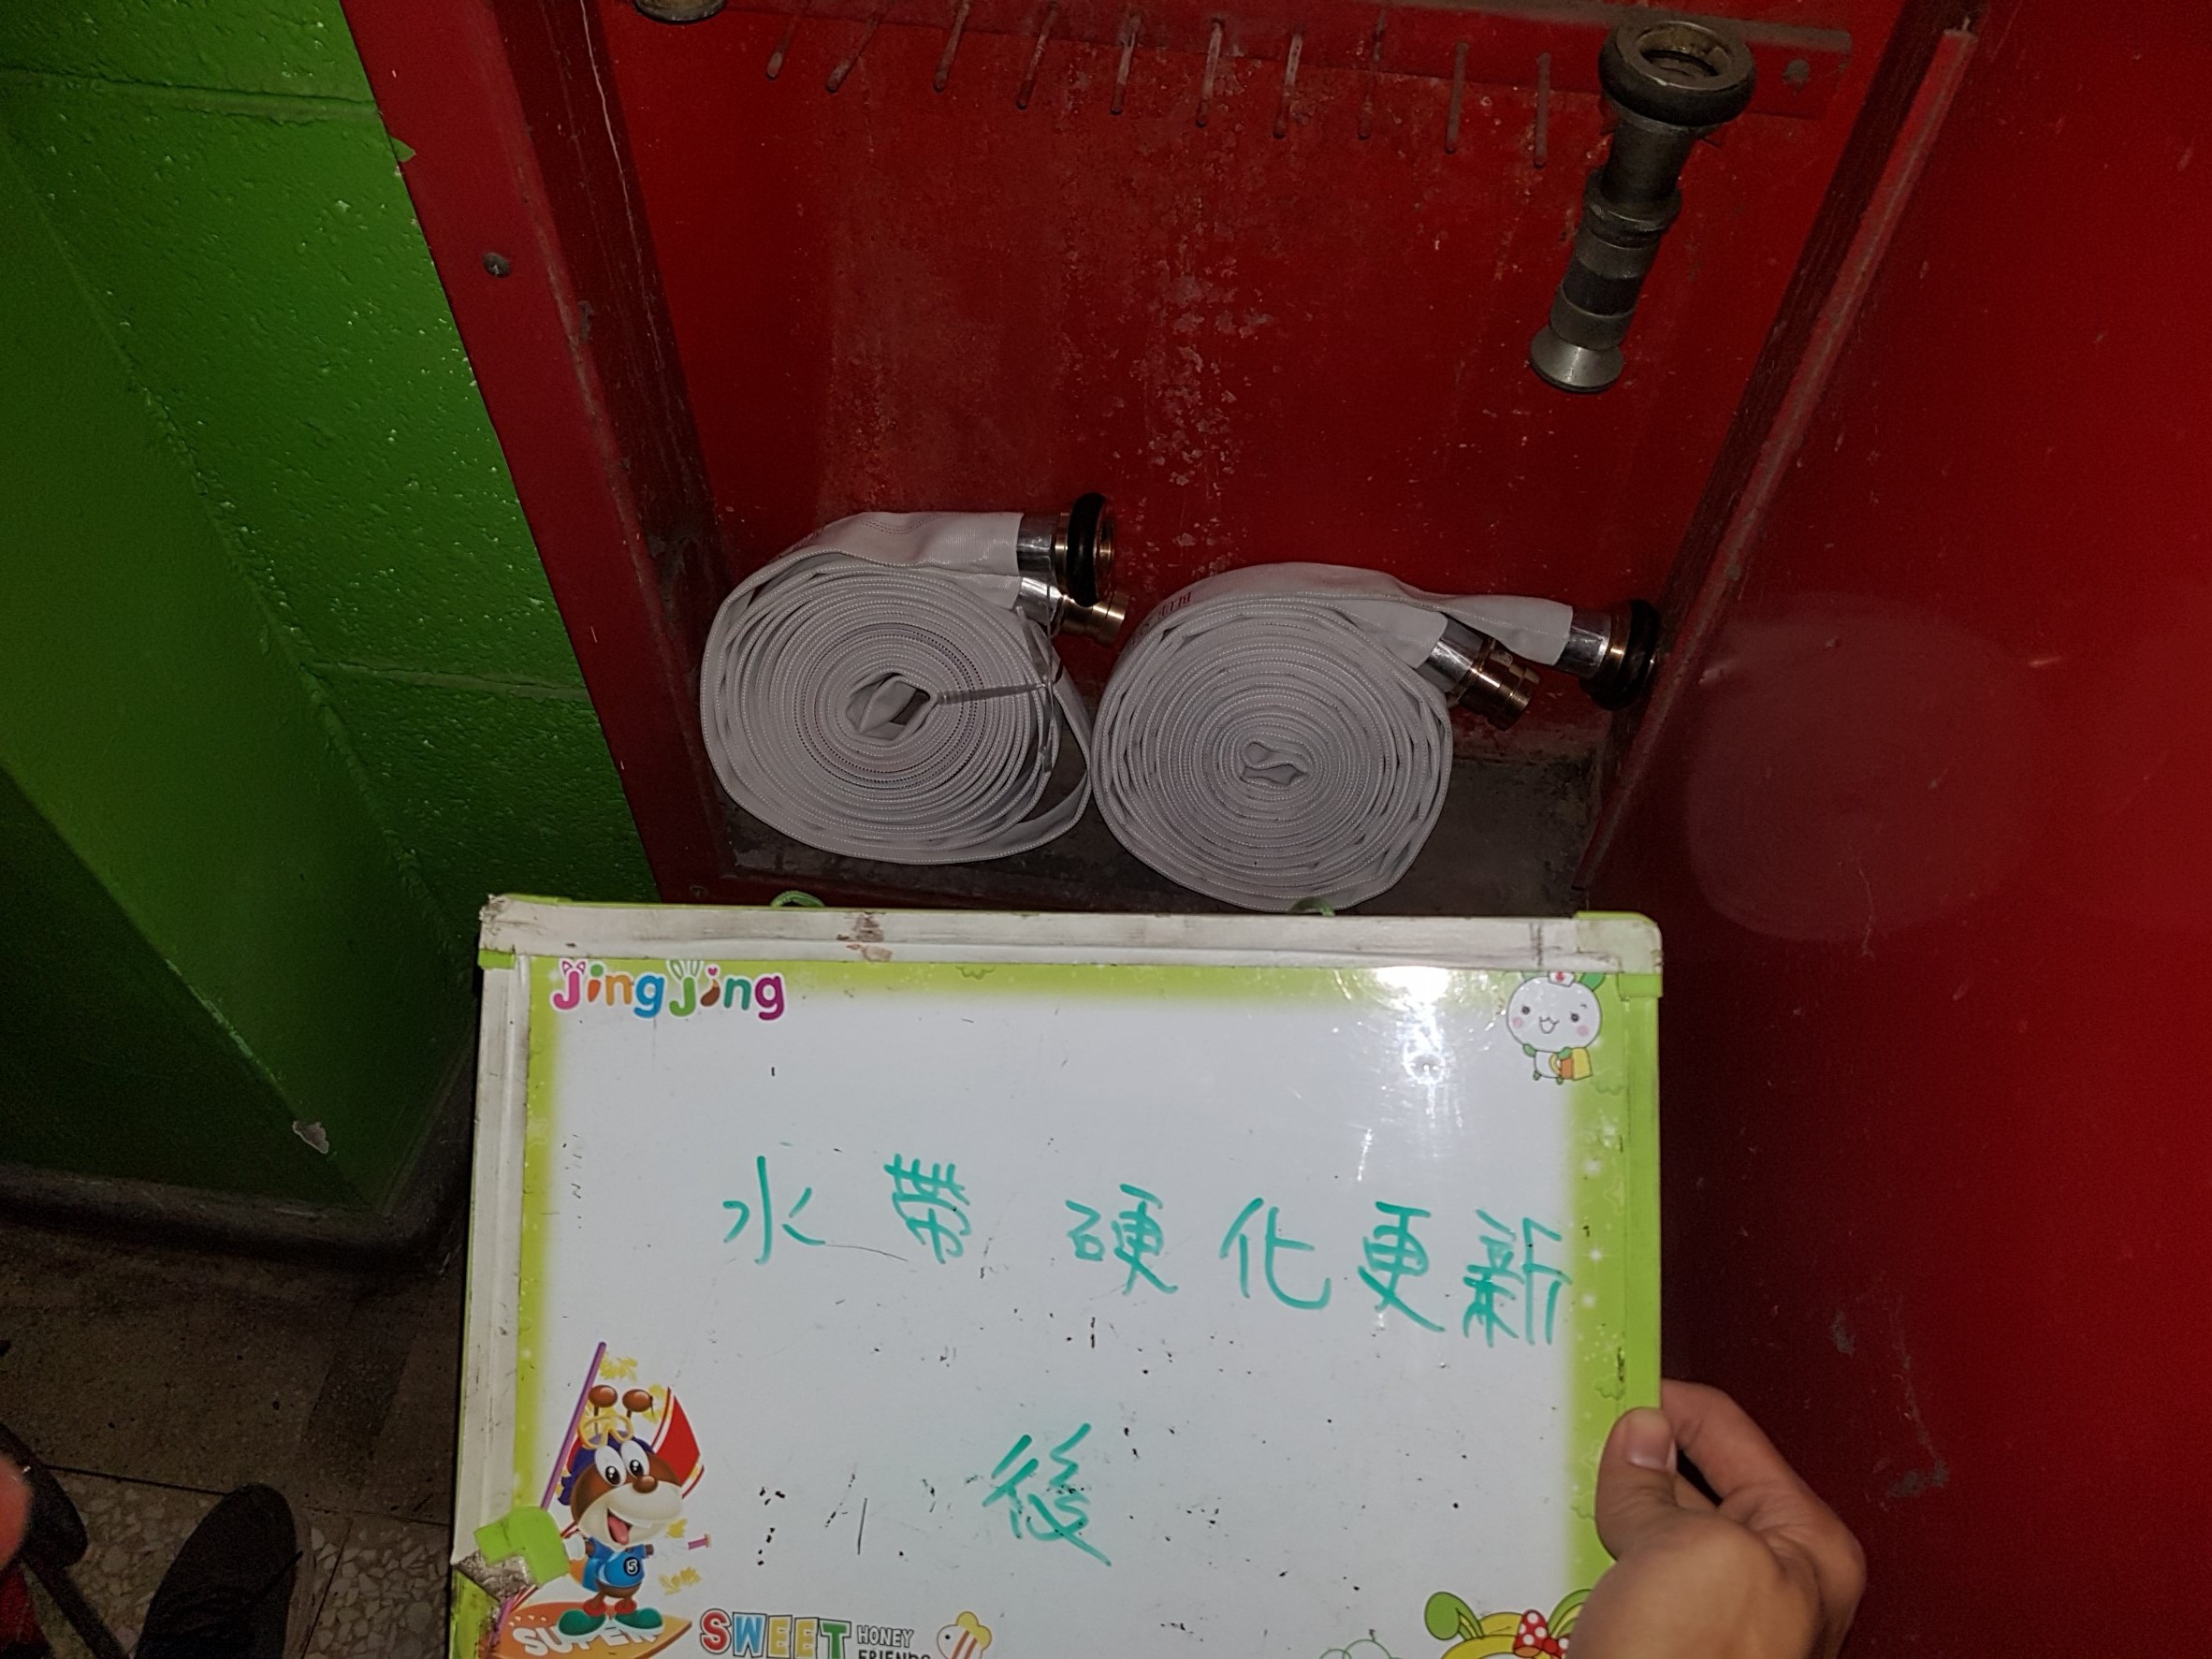 jingjing
水帶 硬化更新
後
5
SUPER
SWEET HONEY
FRIENDS